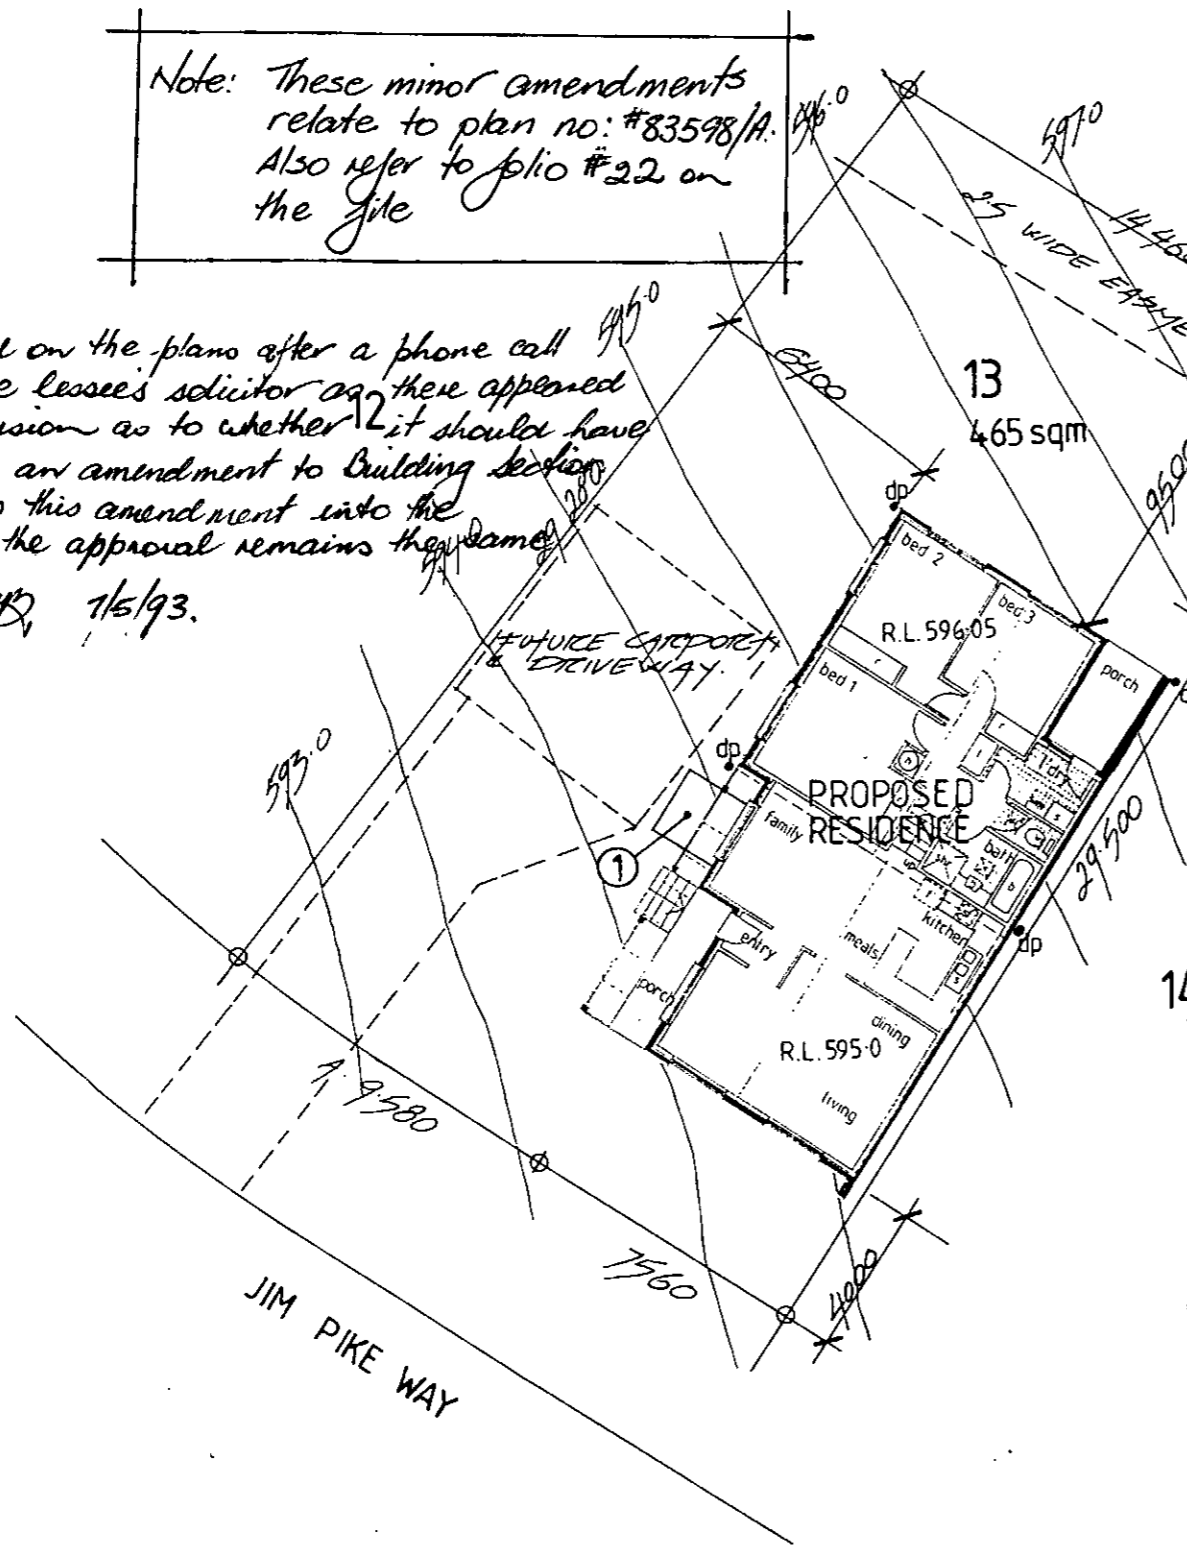 Note: These minor amendments
relate to plan no: #83598/A.
Also refer to folio #22 on
the file
on the plans after a phone call
lessee's solicitor as there appeared
as to whether it should have
an amendment to Building Section.
this amendment into the
the approval remains the same
7/5/93.
12
596·0
597·0
2·5 WIDE
595·0
6400
13
465 sqm
9500
dp
bed 2
bed 3
R.L. 596·05
FUTURE CARPORT
& DRIVEWAY.
bed 1
porch
593·0
dp
l'dry
PROPOSED
RESIDENCE
family
bath
29·500
1
kitchen
entry
meals
dp
porch
dining
R.L. 595·0
living
A. 9·580
7560
4000
JIM PIKE WAY